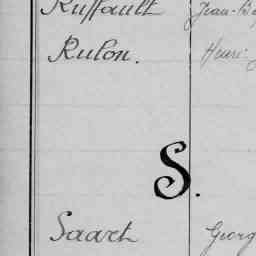 Ruffault Jean-Ba
Rulon. Henri-
S.
Saart Georg